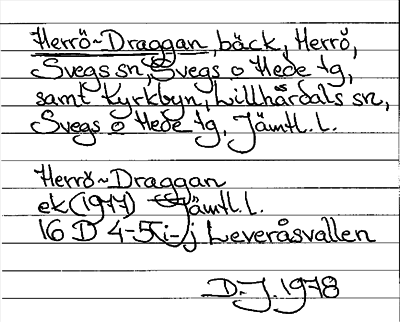 Herrö~Draggan, bäck, Herrö,
Svegs sn, Svegs o Hede tg,
samt Kyrkbyn, Lillhärdals sn,
Svegs o Hede tg, Jämtl. l.
Herrö~Draggan
ek (1977) Jämtl. l.
16 D 4-5 i-j Leveråsvallen
D. J. 1978